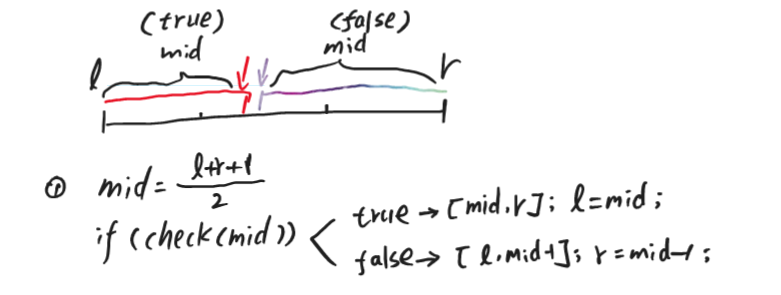 (true) (false)
mid mid
l r
① mid = (l+r+1)/2
if (check(mid)) < true → [mid, r]; l=mid;
false → [l, mid-1]; r=mid-1;